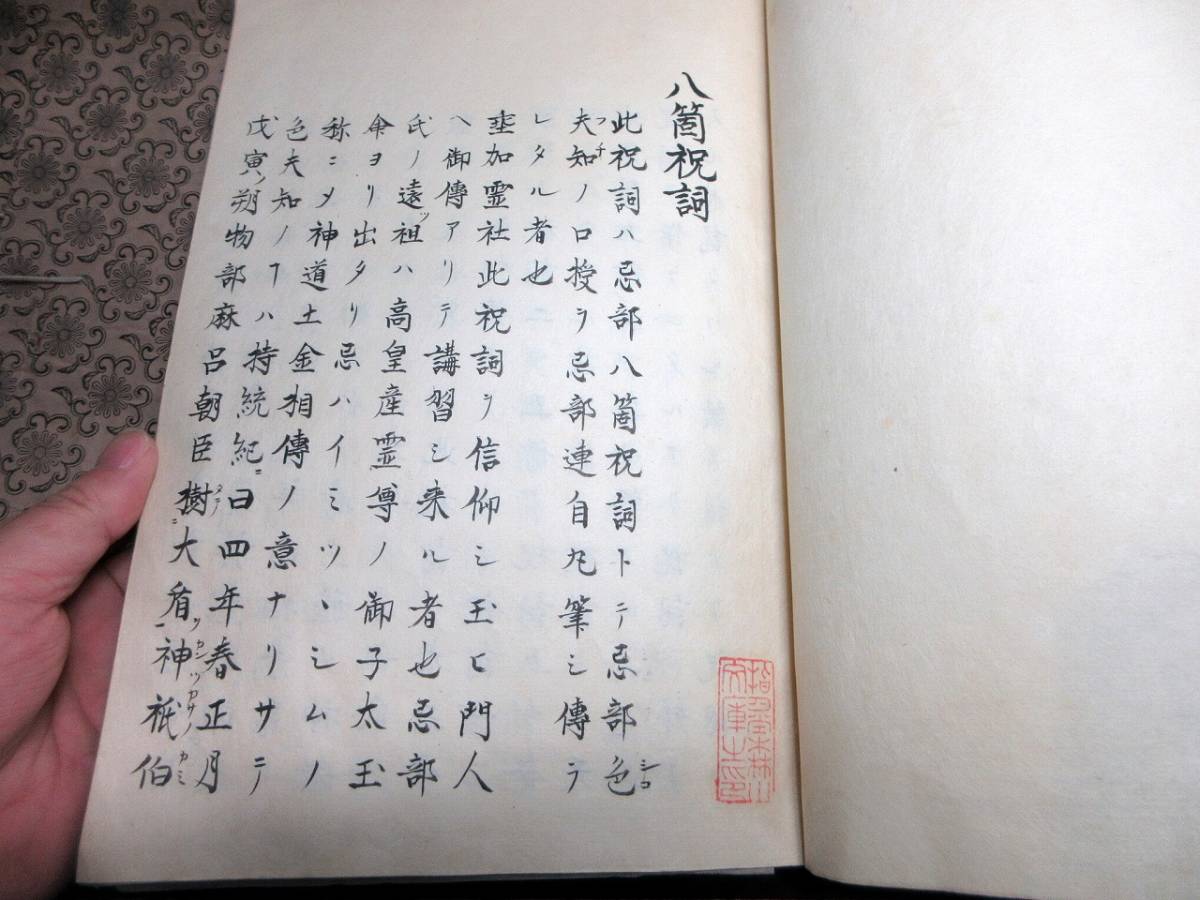 八箇祝詞
此祝詞ハ忌部八箇祝詞トニテ忌部色シロ
夫フ知チノ口授ヲ忌部連自丸筆シ傳ヲ
レタル者也
埀加霊社此祝詞ヲ信仰シ玉ヒ門人
ヘ御傳アリテ講習シ来ル者也忌部
氏ノ遠ツ祖ハ高皇産霊尊ノ御子太玉
命ヨリ出タリ忌ハイミツヽシムノ
称ニメ神道土金相傳ノ意ナリサテ
色夫知ノヿハ持統紀ニ曰四年春正月
戊寅ノ朔物部麻呂朝臣樹タテニ大盾ヲ神カンツカサノ祇伯カミ